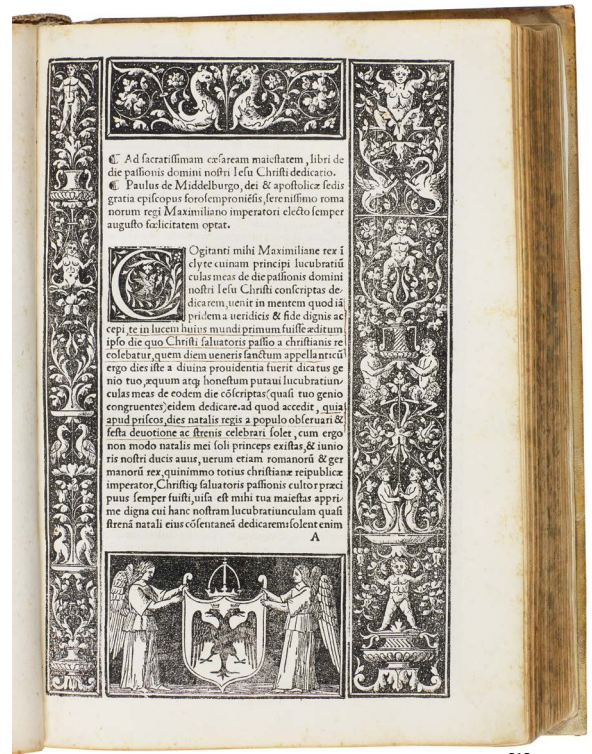 ⁋ Ad sacratissimam cæsaream maiestatem, libri de
die passionis domini nostri Iesu Christi dedicatio.
⁋ Paulus de Middelburgo, dei & apostolicæ sedis
gratia episcopus forosemproniẽsis, serenissimo roma
norum regi Maximiliano imperatori electo semper
augusto fœlicitatem optat.
COgitanti mihi Maximiliane rex ĩ
clyte cuinam principi lucubratiũ
culas meas de die passionis domini
nostri Iesu Christi conscriptas de-
dicarem, uenit in mentem quod iã
pridem a ueridicis & fide dignis ac
cepi, te in lucem huius mundi primum fuisse æditum
ipso die quo Christi saluatoris passio a christianis re
colebatur, quem diem ueneris sanctum appellant: cũ
ergo dies iste a diuina prouidentia fuerit dicatus ge
nio tuo, æquum atq; honestum putaui lucubratiun-
culas meas de eodem die cõscriptas (quasi tuo genio
congruentes) eidem dedicare. ad quod accedit, quia
apud priscos, dies natalis regis a populo obseruari &
festa deuotione ac strenis celebrari solet, cum ergo
non modo natalis mei soli princeps existas, & iunio
ris nostri ducis auus, uerum etiam romanorũ & ger
manorũ rex, quinimmo totius christianæ reipublicæ
imperator, Christiq; saluatoris passionis cultor præci
puus semper fuisti, uisa est mihi tua maiestas appri-
me digna cui hanc nostram lucubratiunculam quasi
strenã natali eius cõsentaneã dedicarem: solent enim
A